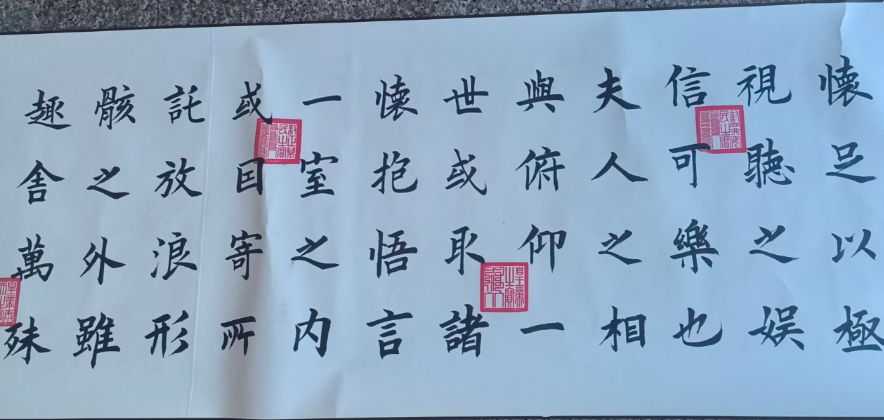 懐足以極
視聽之娱
信可樂也
夫人之相
與俯仰一
世或取諸
懐抱悟言
一室之内
或因寄所
託放浪形
骸之外雖
趣舎萬殊